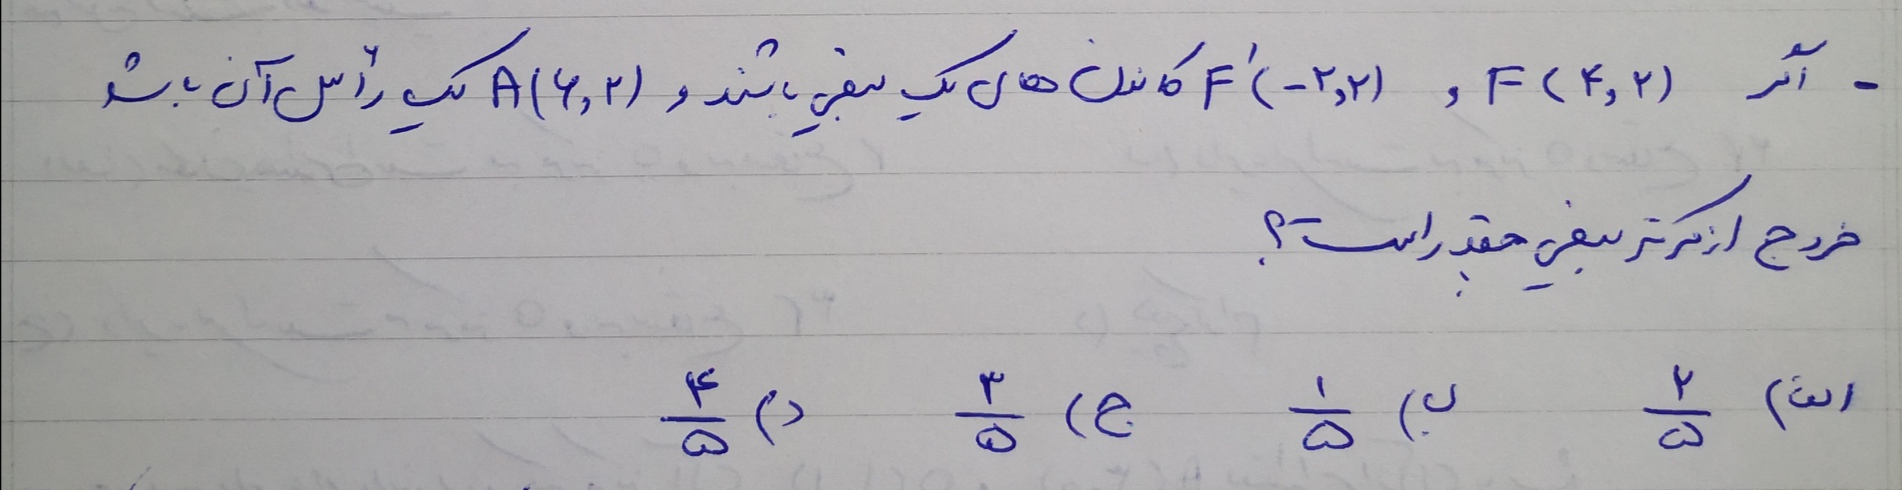 - اگر F (۴,۲) و F'(-۲,۲) کانون های یک بیضی باشند و A(۶,۲) یک رأس آن باشد
خروج از مرکز بیضی چقدر است؟
الف) ۲/۵ ب) ۱/۵ ج) ۳/۵ د) ۴/۵